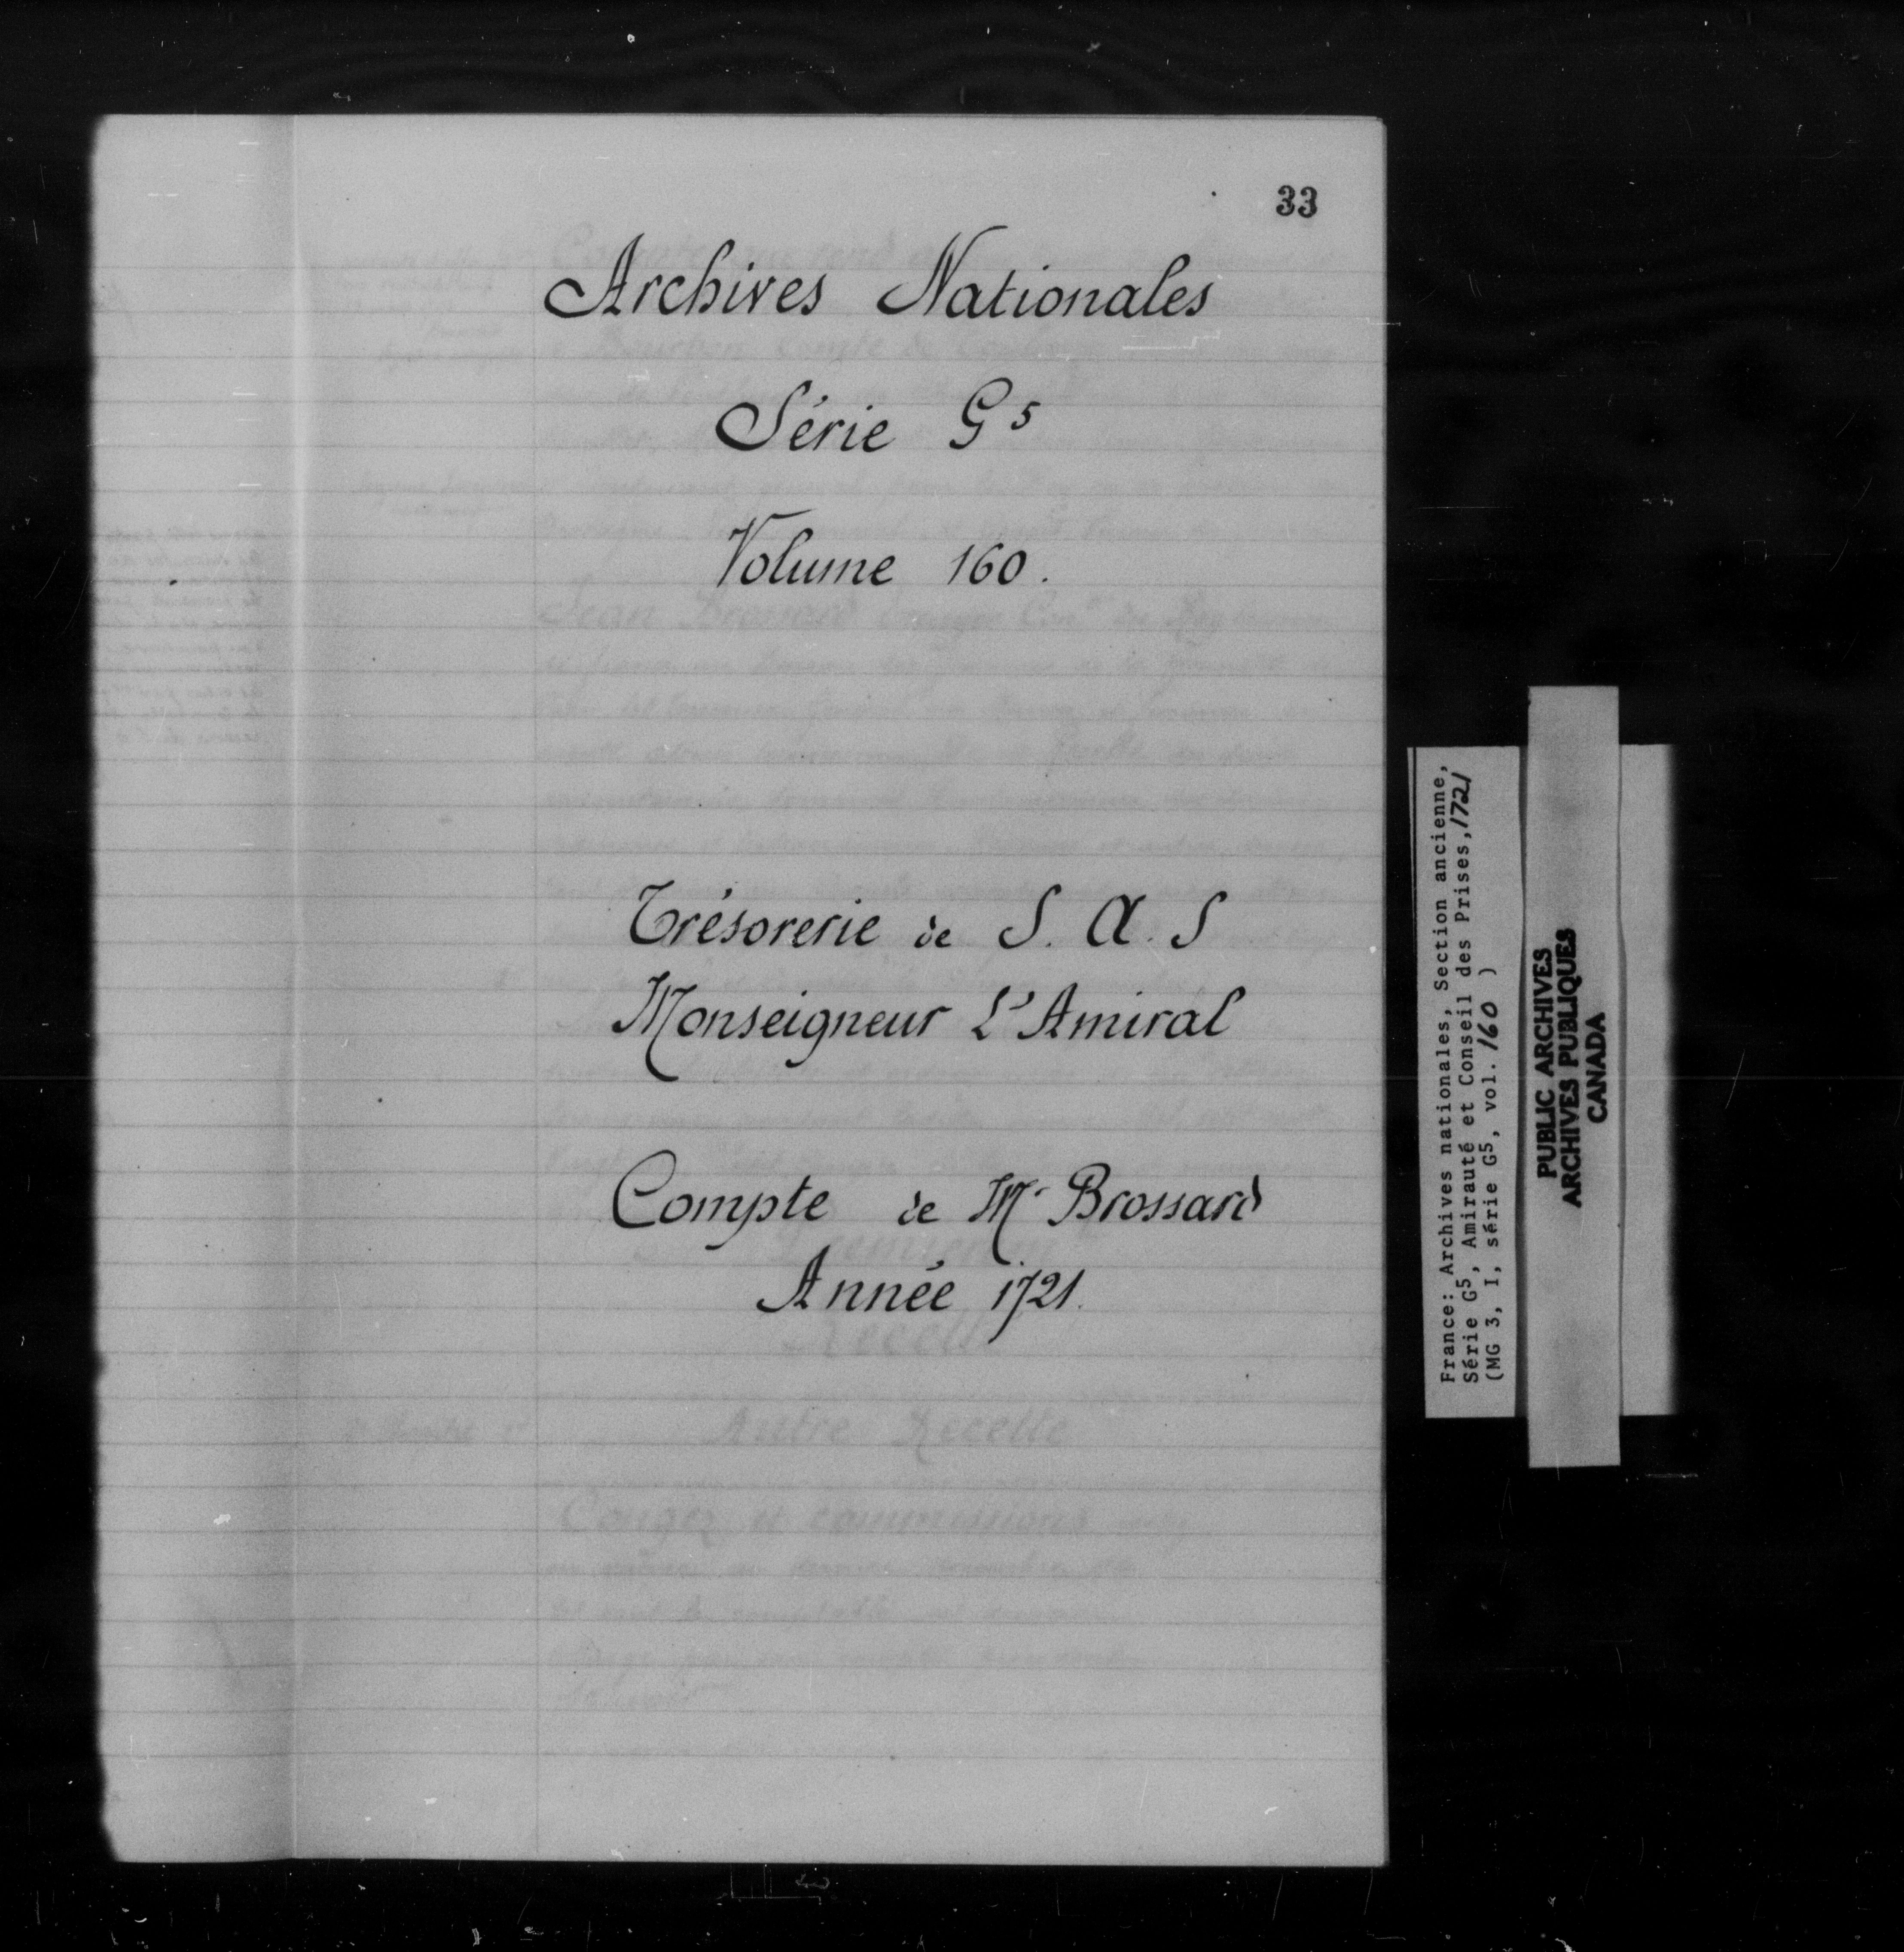 33
Archives Nationales
Série G⁵
Volume 160.
Trésorerie de S. A. S
Monseigneur L'Amiral
Compte de Mr Brossard
Année 1721.
France: Archives nationales, Section ancienne,
Série G⁵, Amirauté et Conseil des Prises, 1721
(MG 3, I, série G⁵, vol. 160 )
PUBLIC ARCHIVES
ARCHIVES PUBLIQUES
CANADA